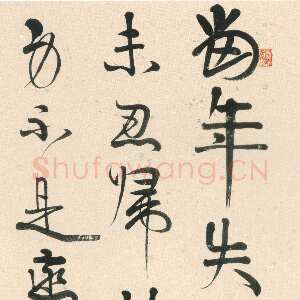 當年失
未忍歸
不是戀
Shufawang.CN